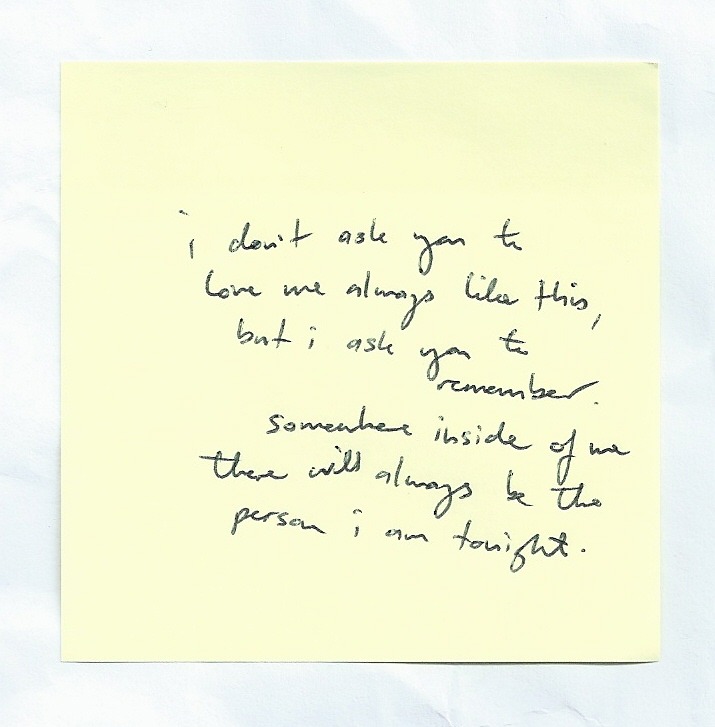 i don't ask you to
love me always like this,
but i ask you to
remember.
somewhere inside of me
there will always be the
person i am tonight.